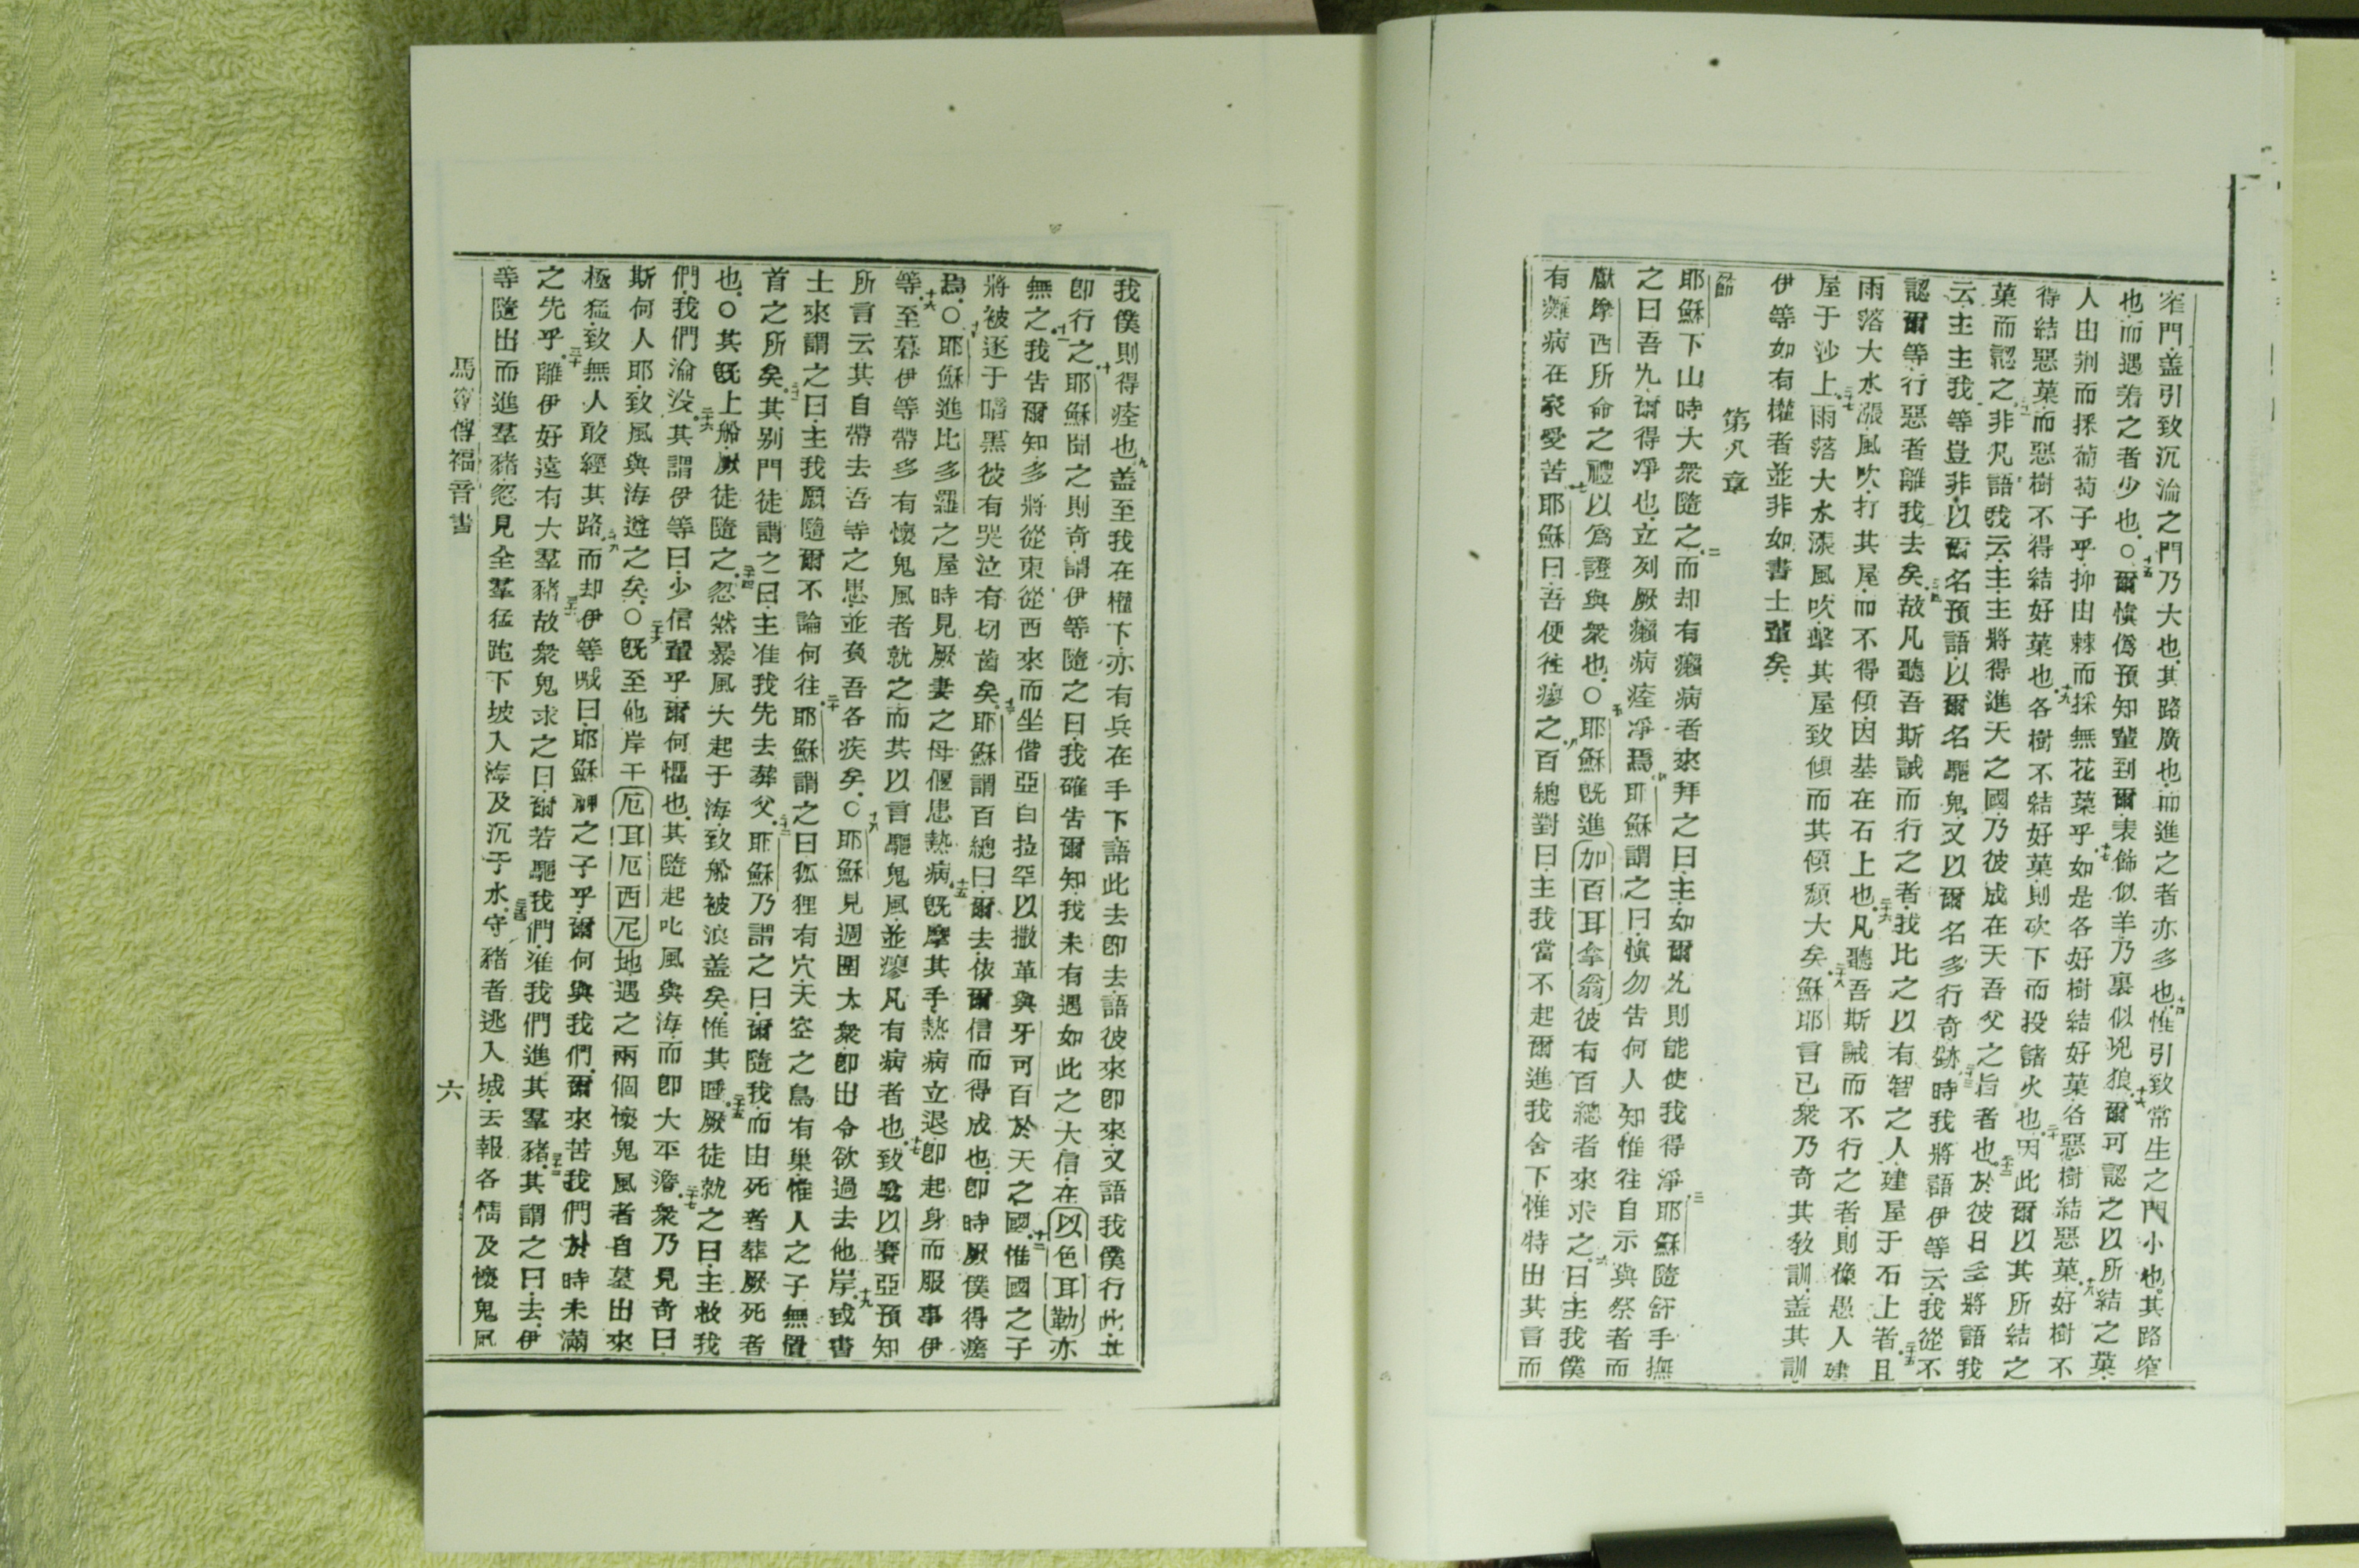 窄門盖引致沉淪之門乃大也其路廣也而進之者亦多也十四惟引致常生之門小也其路窄
也而遇着之者少也〇十五爾慎僞預知輩到爾表飾似羊乃裏似兇狼十六爾可認之以所結之菓
人由荆而採葡萄子乎抑由棘而採無花菓乎十七如是各好樹結好菓各惡樹結惡菓十八好樹不
得結惡菓而惡樹不得結好菓也十九各樹不結好菓則砍下而投諸火也二十因此爾以其所結之
菓而認之二十一非凡語我云主主將得進天之國乃彼成在天吾父之旨者也二十二於彼日多將語我
云主主我等豈非以爾名預語以爾名驅鬼又以爾名多行奇跡二十三時我將語伊等云我從不
認爾等行惡者離我去矣二十四故凡聽吾斯誡而行之者我比之以有智之人建屋于石上者二十五且
雨落大水漲風吹打其屋而不得傾因基在石上也二十六凡聽吾斯誡而不行之者則像愚人建
屋于沙上二十七雨落大水漲風吹擊其屋致傾而其傾頹大矣二十八穌耶言已衆乃奇其敎訓盖其訓
伊等如有權者並非如書士輩矣
第八章
一節
耶穌下山時大衆隨之二而却有癩病者來拜之曰主如爾允則能使我得淨三耶穌隨舒手撫
之曰吾允爾得凈也立刻厥癩病痊凈焉四耶穌謂之曰慎勿告何人知惟往自示與祭者而
獻摩西所命之禮以爲證與衆也〇五耶穌旣進加百耳拿翁彼有百總者來求之六曰主我僕
有癱病在家受苦七耶穌曰吾便往瘳之八百總對曰主我當不起爾進我舍下惟特出其言而
我僕則得痊也九盖至我在權下亦有兵在手下語此去卽去語彼來卽來又語我僕行此其
卽行之十耶穌聞之則奇謂伊等隨之曰我確告爾知我未有遇如此之大信在以色耳勒亦
無之十一我告爾知多將從東從西來而坐偕亞白拉罕以撒革與牙可百於天之國十二惟國之子
將被逐于暗黑彼有哭泣有切齒矣十三耶穌謂百總曰爾去依爾信而得成也卽時厥僕得瘥
焉〇十四耶穌進比多羅之屋時見厥妻之母偃患熱病十五旣摩其手熱病立退卽起身而服事伊
等十六至暮伊等帶多有懷鬼風者就之而其以言驅鬼風並瘳凡有病者也十七致驗以賽亞預知
所言云其自帶去吾等之患並負吾各疾矣〇十八耶穌見週圍大衆卽出令欲過去他岸十九或書
士來謂之曰主我願隨爾不論何往二十耶穌謂之曰狐狸有穴天空之鳥有巢惟人之子無置
首之所矣二十一其别門徒謂之曰主准我先去葬父二十二耶穌乃謂之曰爾隨我而由死者葬厥死者
也〇二十三其旣上船厥徒隨之二十四忽然暴風大起于海致船被浪盖矣惟其睡二十五厥徒就之曰主救我
們我們淪没二十六其謂伊等曰少信輩乎爾何懼也其隨起叱風與海而卽大平濳二十七衆乃見奇曰
斯何人耶致風與海遵之矣〇二十八旣至他岸于厄耳厄西尼地遇之兩個懷鬼風者自墓出來
極猛致無人敢經其路二十九而却伊等喊曰耶穌神之子乎爾何與我們爾來苦我們於時未滿
之先乎三十離伊好遠有大羣豬三十一故衆鬼求之曰爾若驅我們准我們進其羣豬三十二其謂之曰去伊
等隨出而進羣豬忽見全羣猛跑下坡入海及沉于水三十三守豬者逃入城去報各情及懷鬼風
馬竇傳福音書
六